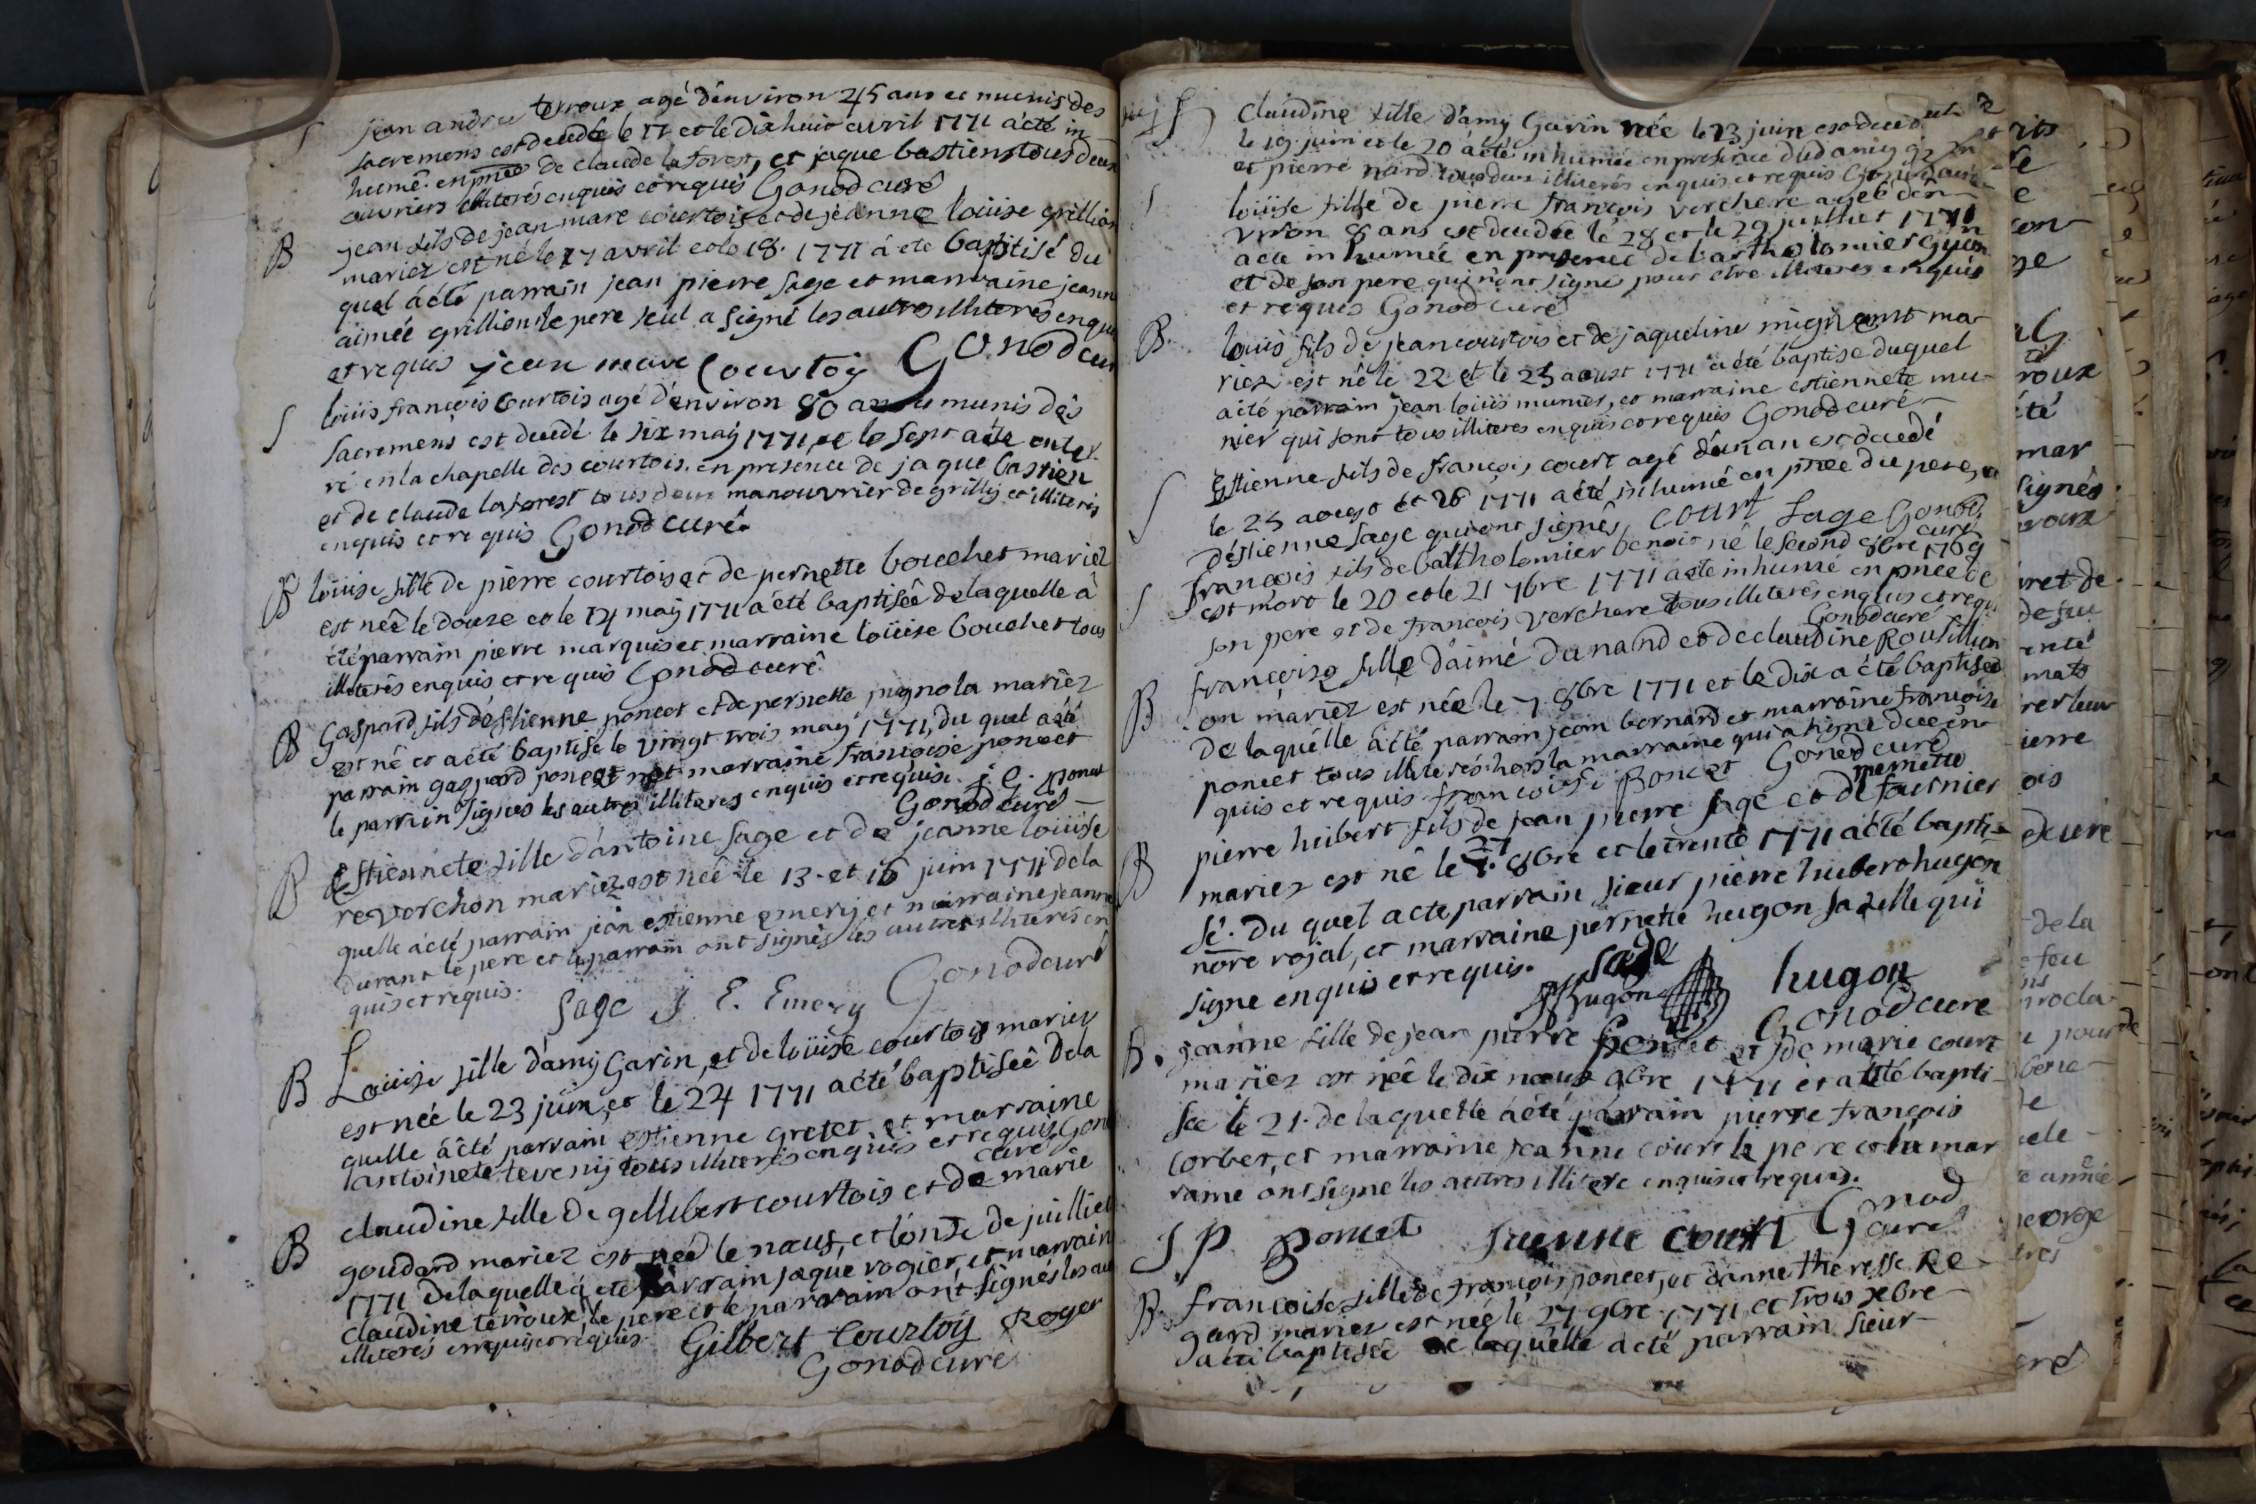 S jean andre terroux agé d'environ 45 ans et munis des
sacremens est decedé le 17 et le dix huit avril 1771 a été in
humé en pnce de claude laforest, et jaque bastien tous deux
ouvriers illiterés enquis et requis Gonod curé
B jean fils de jean marc courtois et de jeanne loüise grillion
mariez est né le 17 avril et le 18. 1771 a ete baptisé du
quel a été parrain jean pierre sage et marraine jeanne
aimée grillion le pere seul a signé les autres illiterés enquis
et requis jean marc Courtoy Gonod cur
S loüis françois Courtois agé d'environ 80 ans munis des
sacremens est decedé le six maÿ 1771, et le sept a été enter
ré en la chapelle des courtois. en presence de jaque bastien
et de claude laforest tous deux manouvrier de grilly et illiterés
enquis et requis Gonod curé.
B loüise fille de pierre courtois et de pernette bouchet mariez
est neê le douze et le 14 maÿ 1771 a été baptiseê de laquelle a
été parrain pierre marquis et marraine loüise bouchet tous
illiterés enquis et requis Gonod curé.
B Gaspard fils d'estienne poncet et de pernette pignola mariez
est né et a été baptise le vingt trois maÿ 1771, du quel a été
parrain gaspard poncet et marraine françoise poncet
le parrain signés les autres illiteres enquis et requis. j. e. poncet
Gonod curé
B Estiennete fille d'antoine sage et de jeanne loüise
reverchon mariez est neê le 13. et 16 juin 1771 de la
quelle a été parrain jean estienne emery et marraine jeanne
durant le pere et le parrain ont signés les autres illiteres en
quis et requis. Sage J. E. Emery Gonod curé
B Loüise fille d'amy Garin, et de loüise courtois mariez
est née le 23 juin, et le 24 1771 a été baptiseê de la
quelle a été parrain estienne gretet et marraine
antoinete teveny tous illiterés enquis et requis Gonod
curé
B claudine fille de gillibert courtois et de marie
goudard mariez est neê le neuf, et l'onze de juilliet
1771 de laquelle a ete parrain jaque rogier, et marraine
claudine terroux, le pere et le parrain ont signés les aut
illiteres enquis et requis. Gilbert Courtoy Roger
Gonod cure
S Claudine fille d'amy Garin née le 23 juin est decedée
le 19 juin et le 20 a été inhumée en presence dud amy
et pierre nard tous deux illiterés enquis et requis Gonod curé
loüise fille de pierre françois verchere ageé d'en
viron 8 ans est decedee le 28 et le 29 juilliet 1771
a été inhumée en presence de bartholomier guion
et de son pere qui n'ont signé pour etre illiteres enquis
et requis Gonod curé
B. loüis fils de jean courtois et de jaqueline mignont ma-
riez est né le 22 et le 25 aoust 1771 a été baptise duquel
a été parrain jean loüis munier, et marraine estiennete mu-
nier qui sont tous illiteres enquis et requis Gonod curé
S Estienne fils de françois court agé d'un an est decedé
le 25 aougo et 26 1771 a été inhumé en pnce du pere, et
d'estienne sage qui ont signés, court Sage Gonod
curé
S françois fils de bartholomier benoit né le second 8bre 1769
est mort le 20 et le 21 7bre 1771 a été inhumé en pnce de
son pere et de francois verchere tous illiterés enquis et requi
Gonod curé
B françoise fille d'aimé dunand et de claudine Rousillion
on mariez est née le 7. 8bre 1771 et le dix a été baptisee
de laquelle a été parrain jean bernard et marraine francoise
poncet tous illiteres hors la marraine qui a signé due en
quis et requis françoise Poncet Gonod curé
pernette
B pierre hubert fils de jean pierre sage et de fournier
27
mariez est né le 8bre et le trente 1771 a été bapti-
sé. du quel a cte parrain sieur pierre hubert hugon
nore rojal, et marraine pernette hugon sa fille qui
signe enquis et requis. Sage
Hugon hugon
Gonod cure
B. jeanne fille de jean pierre poncet et de marie court
mariez est neê le dix neuf 9bre 1771 et a été bapti-
seé le 21. de laquelle a été parrain pierre françois
corbet, et marraine jeanne court le pere et la mar
raine ont signe les autres illitere enquis et requis.
J P Poncet jeanne court Gonod
curé
B. francoise fille de françois poncet, et d'anne theresse Re-
gard mariez est neé le 27 9bre 1771 et trois xbre
a été baptisée de laquelle a été parrain sieur